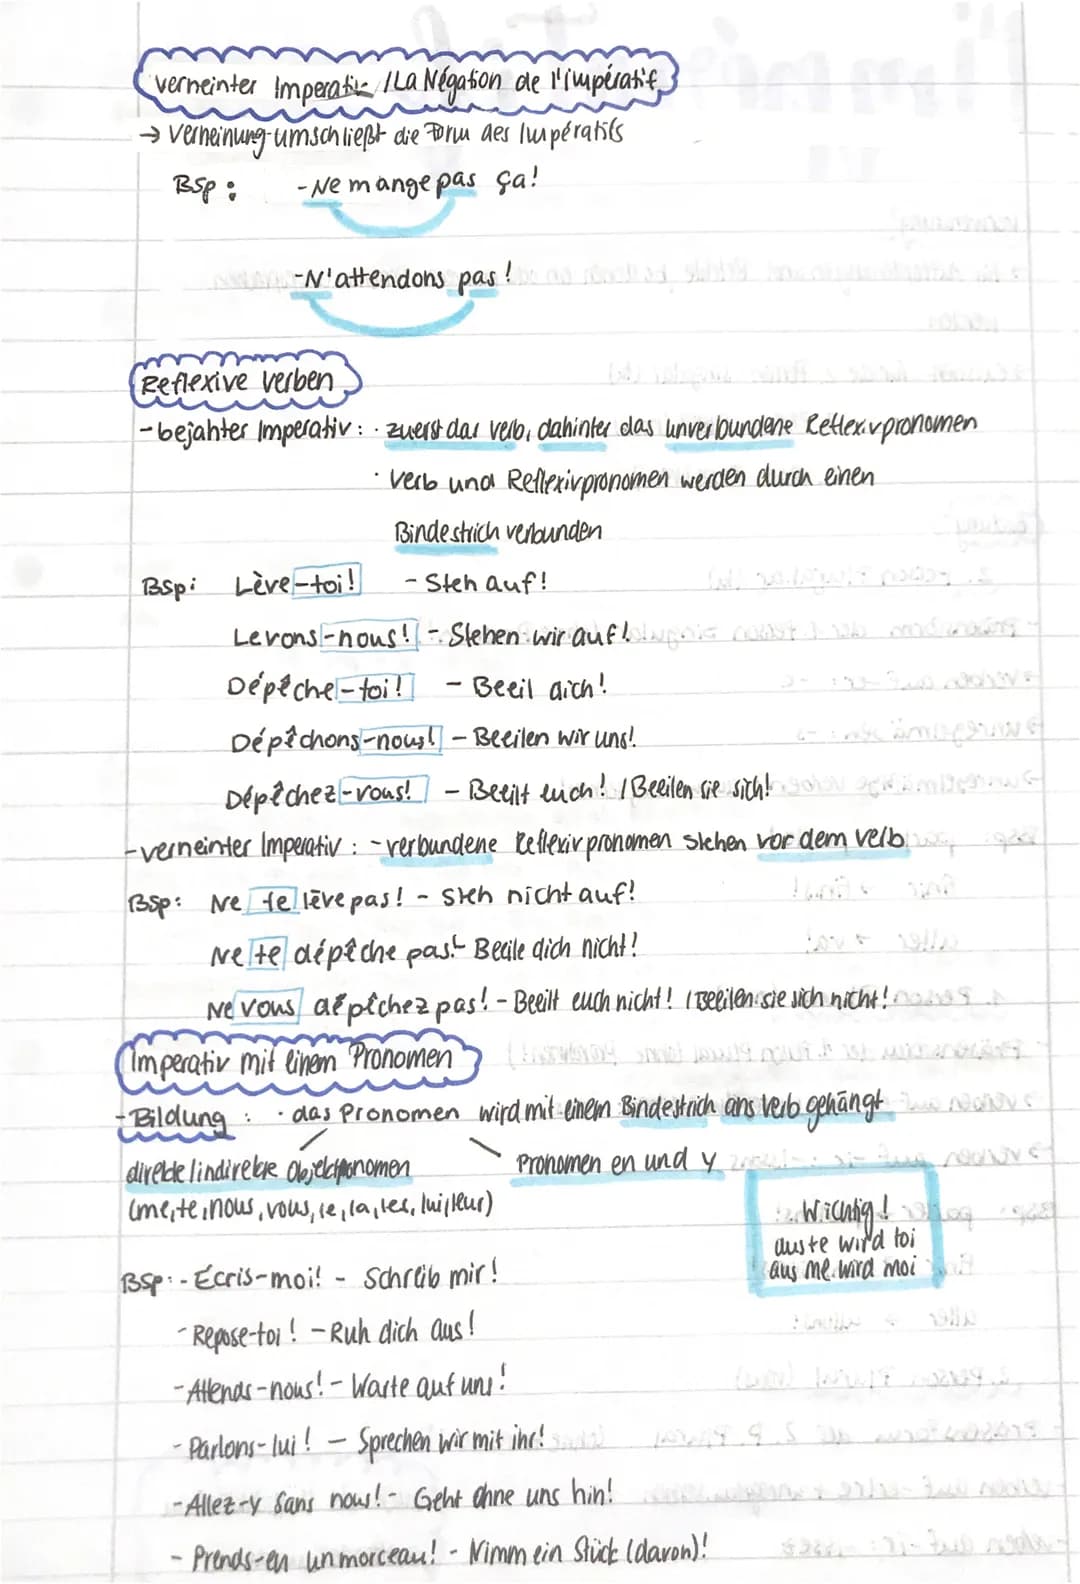 verneinter Imperativ / La Négation de l'impératif
→ Verneinung umschließt die Form des Impératifs
BSP: - Ne mange pas ça!
- N'attendons pas!
Reflexive Verben
- bejahter Imperativ: · zuerst das Verb, dahinter das unverbundene Reflexivpronomen
· Verb und Reflexivpronomen werden durch einen
Bindestrich verbunden
BSP: Lève-toi! - Steh auf!
Levons-nous! - Stehen wir auf!
Dépêche-toi! - Beeil dich!
Dépêchons-nous! - Beeilen wir uns!
Dépêchez-vous! - Beeilt euch! / Beeilen sie sich!
- verneinter Imperativ: - verbundene Reflexivpronomen stehen vor dem Verb
BSP: Ne te lève pas! - Steh nicht auf!
Ne te dépêche pas! - Beeile dich nicht!
Ne vous dépêchez pas! - Beeilt euch nicht! / Beeilen sie sich nicht!
Imperativ mit einem Pronomen
- Bildung: · das Pronomen wird mit einem Bindestrich ans Verb gehängt
direkte/indirekte Objektpronomen Pronomen en und y
(me, te, nous, vous, le, la, les, lui, leur)
Wichtig!
aus te wird toi
aus me wird moi
BSP: - Écris-moi! - Schreib mir!
- Repose-toi! - Ruh dich aus!
- Attends-nous! - Warte auf uns!
- Parlons-lui! - Sprechen wir mit ihr!
- Allez-y sans nous! - Geht ohne uns hin!
- Prends-en un morceau! - Nimm ein Stück (davon)!